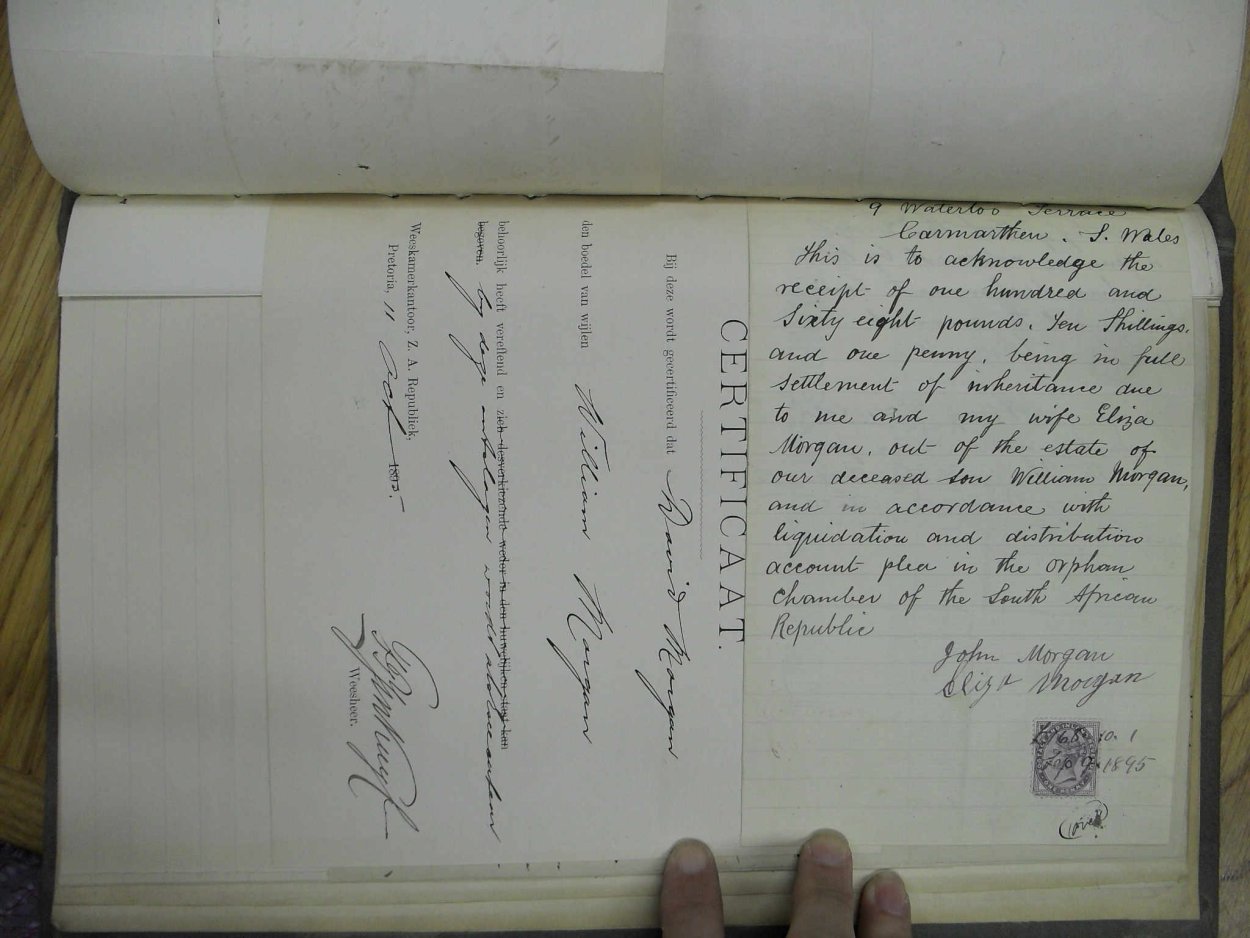 9 Waterloo Terrace
Carmarthen. S. Wales
This is to acknowledge the
receipt of one hundred and
Sixty eight pounds. Ten Shillings.
and one penny, being in full
settlement of inheritance due
to me and my wife Eliza
Morgan, out of the estate of
our deceased son William Morgan,
and in accordance with
liquidation and distribution
account in the orphan
chamber of the South African
Republic
John Morgan
Eliza Morgan
£168.10.1
1895
(over)
CERTIFICAAT.
Bij deze wordt gecertificeerd dat David Morgan
den boedel van wijlen William Morgan
behoorlijk heeft vereffend en zich desverkiezende weder in den huwelijken staat kan
begeven. by deze ontslagen wordt als
Weeskamerkantoor, Z. A. Republiek,
Pretoria, 11 Oct 1895.
Weesheer.